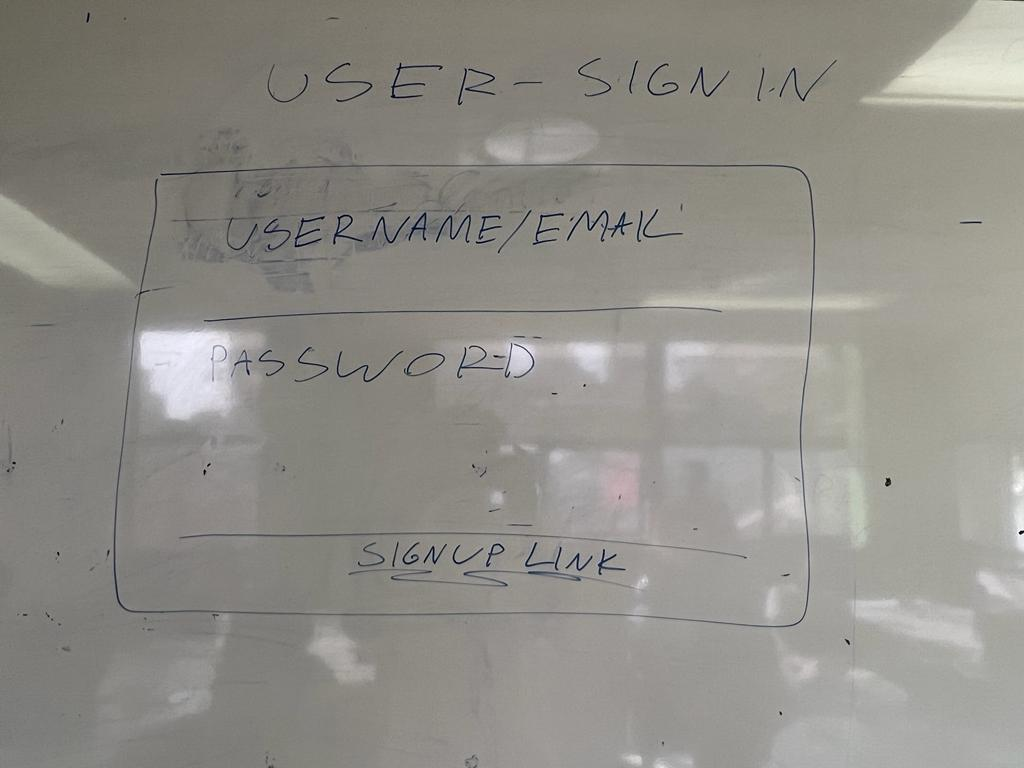 USER - SIGN IN
USERNAME/EMAIL
PASSWORD
SIGNUP LINK